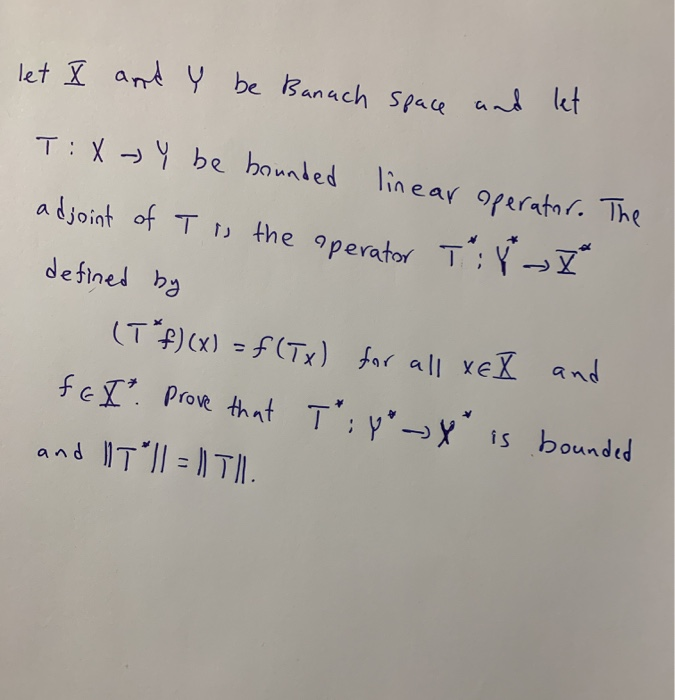 let X and Y be Banach space and let
T : X → Y be bounded linear operator. The
adjoint of T is the operator T* : Y* → X*
defined by
(T*f)(x) = f(Tx) for all x∈X and
f ∈ X*. Prove that T* : Y* → X* is bounded
and ||T*|| = ||T||.